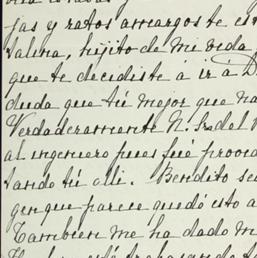 jas y ratos amargos te es
Salina, hijito de mi vida
que te decidiste á ir á D
duda que tú mejor que na
Verdaderamente N. Sra del
al ingeniero pues fué provid
tando tú alli. Bendito se
gen que parece quedó esto a
Tambien me ha dado m